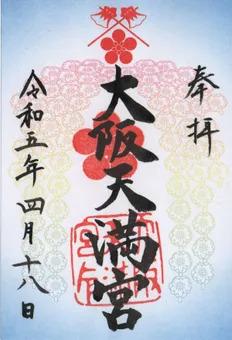 奉拝
大阪天満宮
令和五年四月十八日